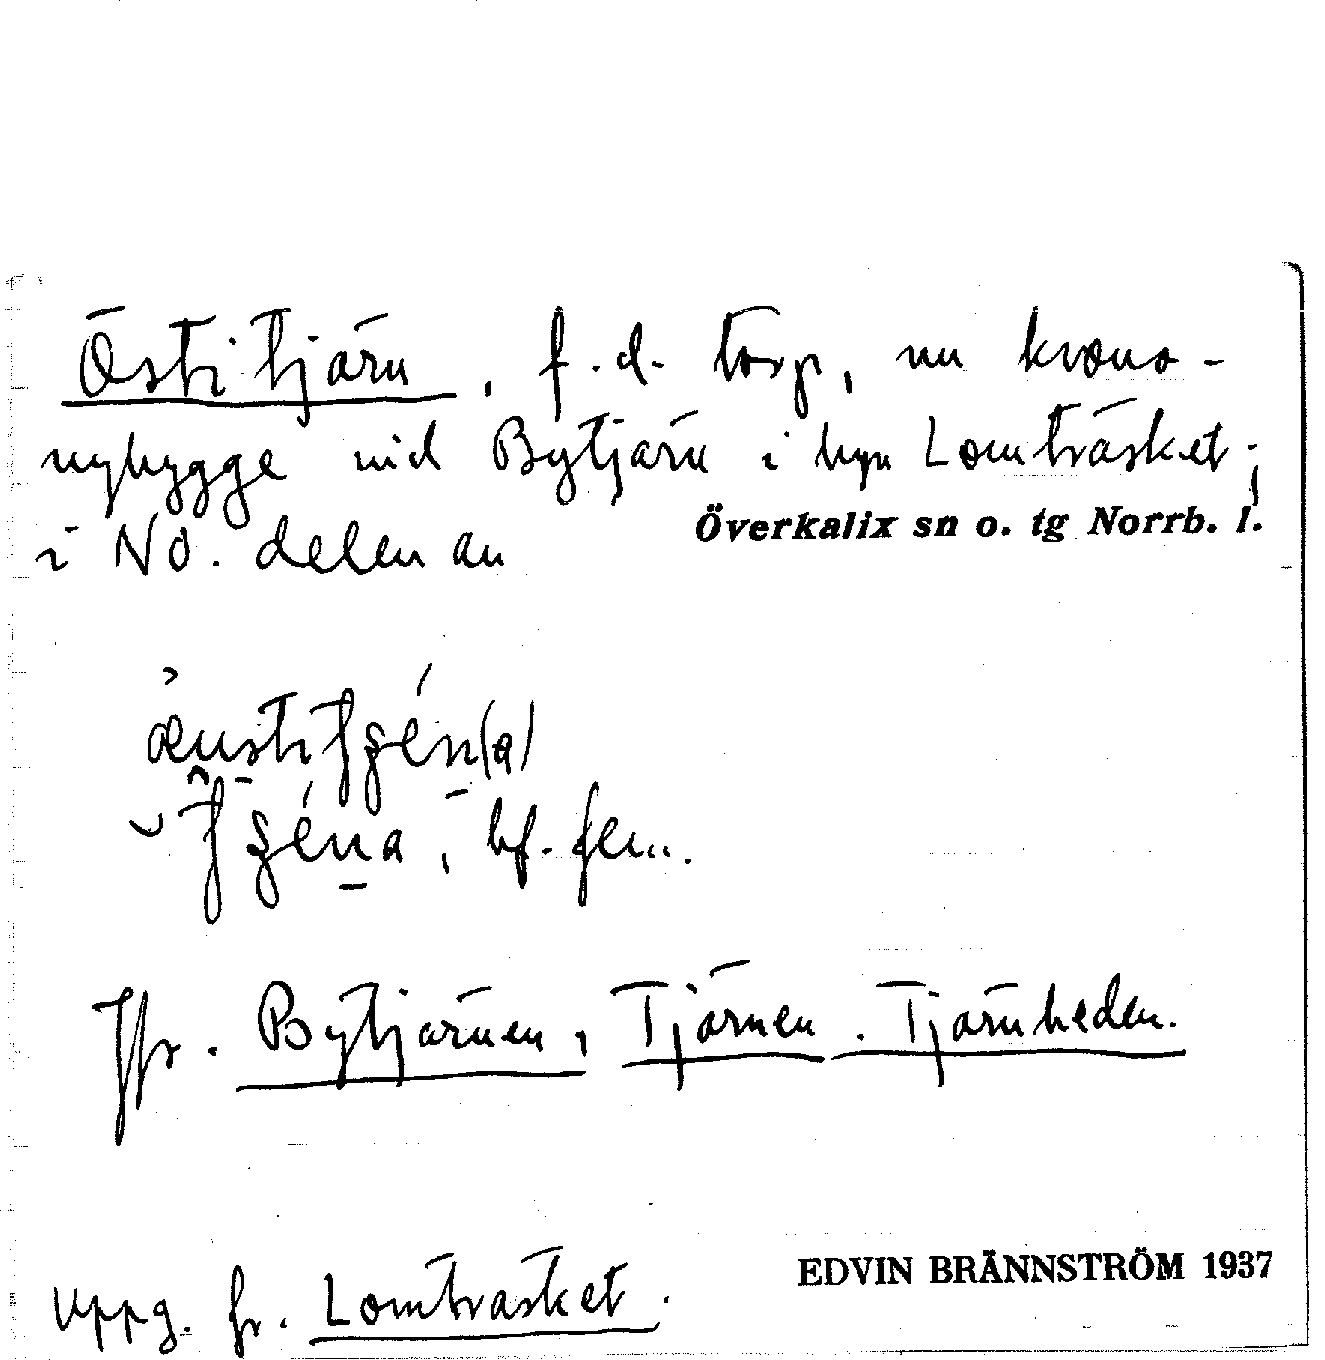 Östi tjärn, f.d. torp, nu krono-
nybygge vid Bytjärn i byn Lomträsket;
i NÖ. delen av Överkalix sn o. tg Norrb. l.
bf. fem.
Jfr. Bytjärnen, Tjärnen. Tjärnheden.
Uppg. fr. Lomträsket.
EDVIN BRÄNNSTRÖM 1937